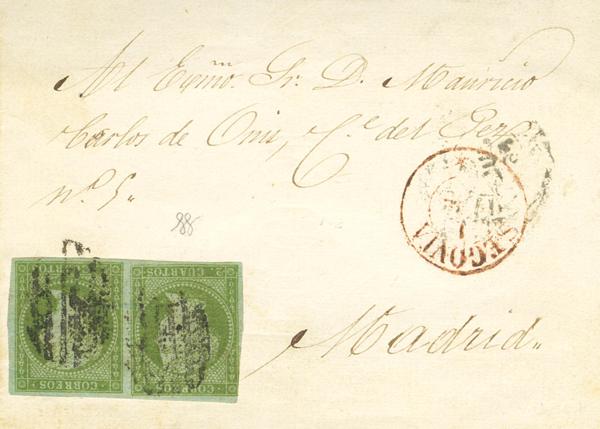 Al Exmo. Sr. D. Mauricio
Carlos de Onis, C.e del Pez
nº 5.
88
SEGOVIA
2 CUARTOS
2 CUARTOS
CORREOS
CORREOS
Madrid.